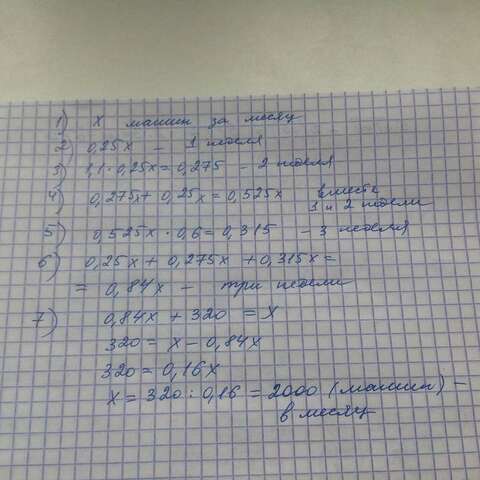 1) x машин за месяц
2) 0,25x - 1 неделя
3) 1,1·0,25x = 0,275 - 2 неделя
4) 0,275x + 0,25x = 0,525x вместе
1 и 2 недели
5) 0,525x · 0,6 = 0,315 - 3 неделя
6) 0,25x + 0,275x + 0,315x =
= 0,84x - три недели
7) 0,84x + 320 = x
320 = x - 0,84x
320 = 0,16x
x = 320 : 0,16 = 2000 (машин) -
в месяц